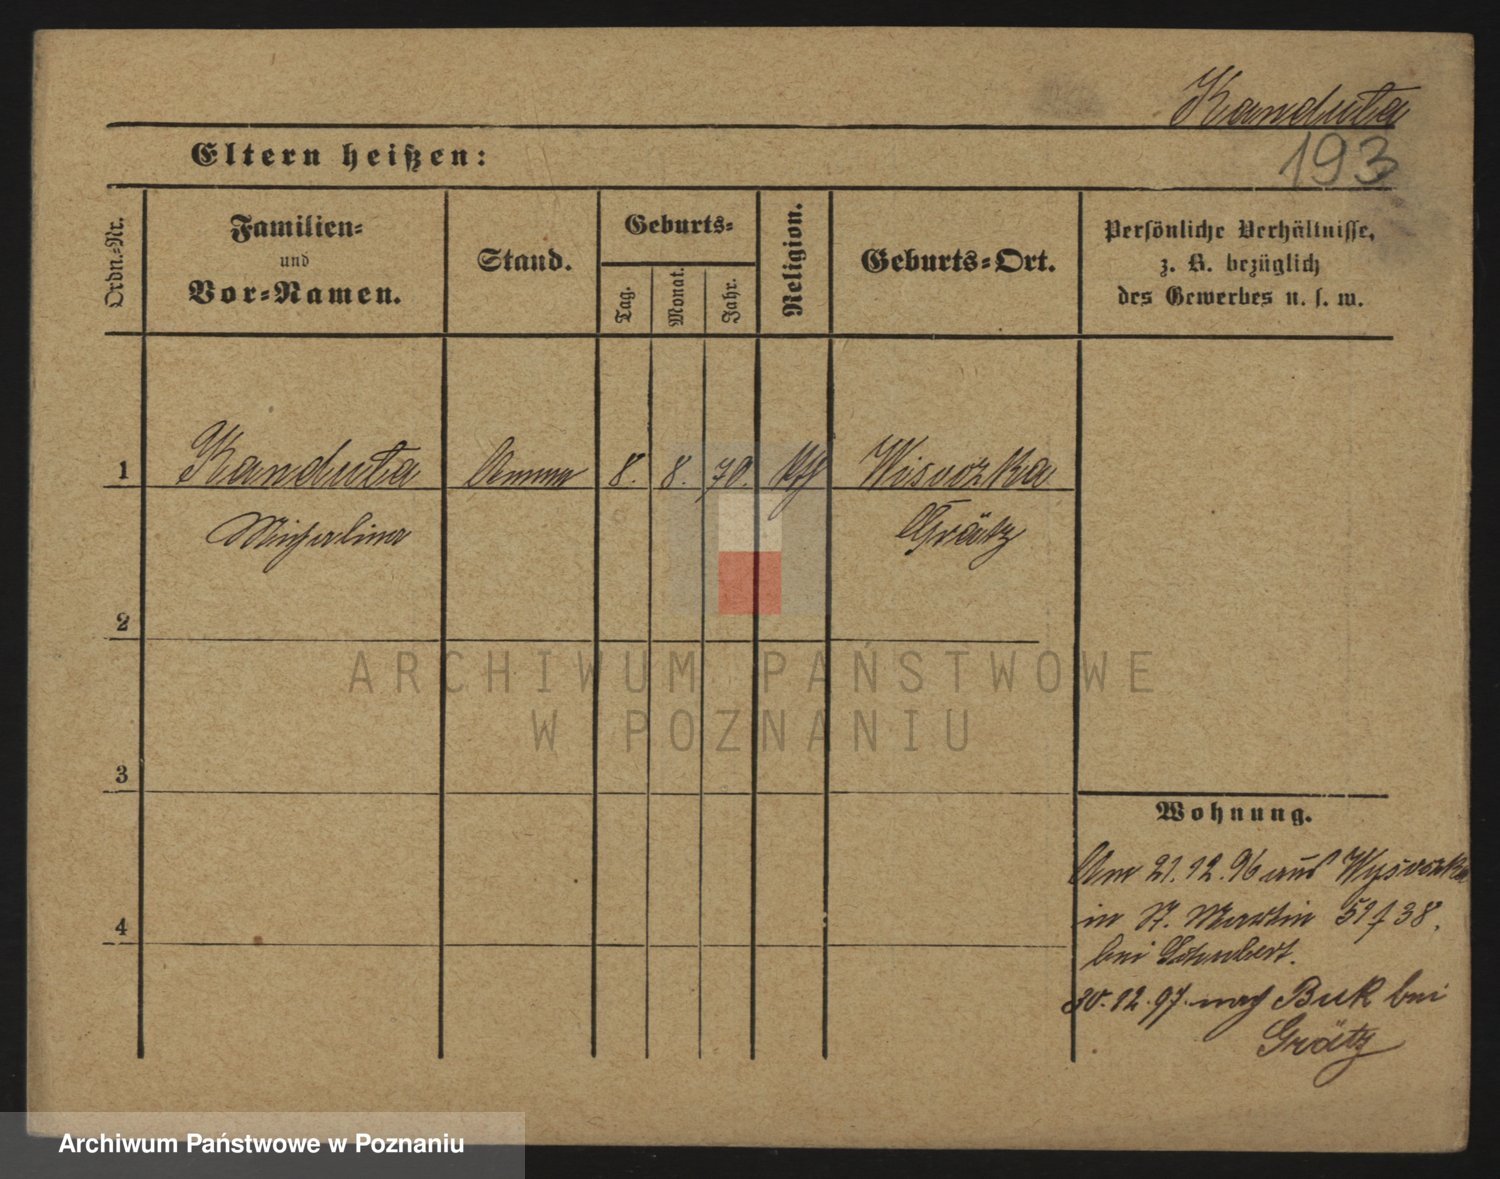 Kanduta
193
Eltern heißen:
Ordn.-Nr.
Familien-
und
Vor-Namen.
Stand.
Geburts-
Tag.
Monat.
Jahr.
Religion.
Geburts-Ort.
Persönliche Verhältnisse,
z. B. bezüglich
des Gewerbes u. s. w.
1 Kanduta Amme 8. 8. 70. kth Wisoczka
Michalina Grätz
2
3
4
Wohnung.
Am 21.12.96 aus Wysoczka
in St. Martin 38.
bei Schubert.
30.12.97. nach Buk bei
Grätz
ARCHIWUM PAŃSTWOWE
W POZNANIU
Archiwum Państwowe w Poznaniu